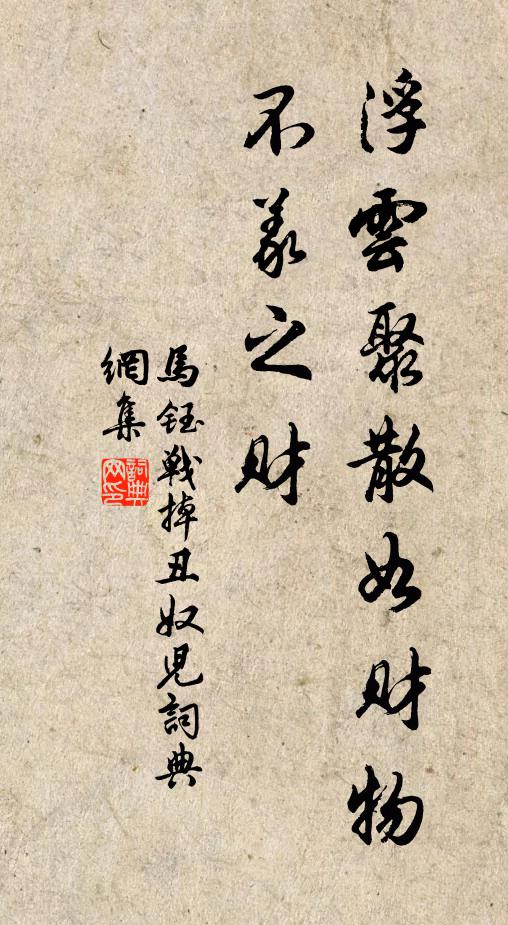 浮雲聚散如财物
不義之财
馬鈺戰掉丑奴兒詞典
網集
詞典网印